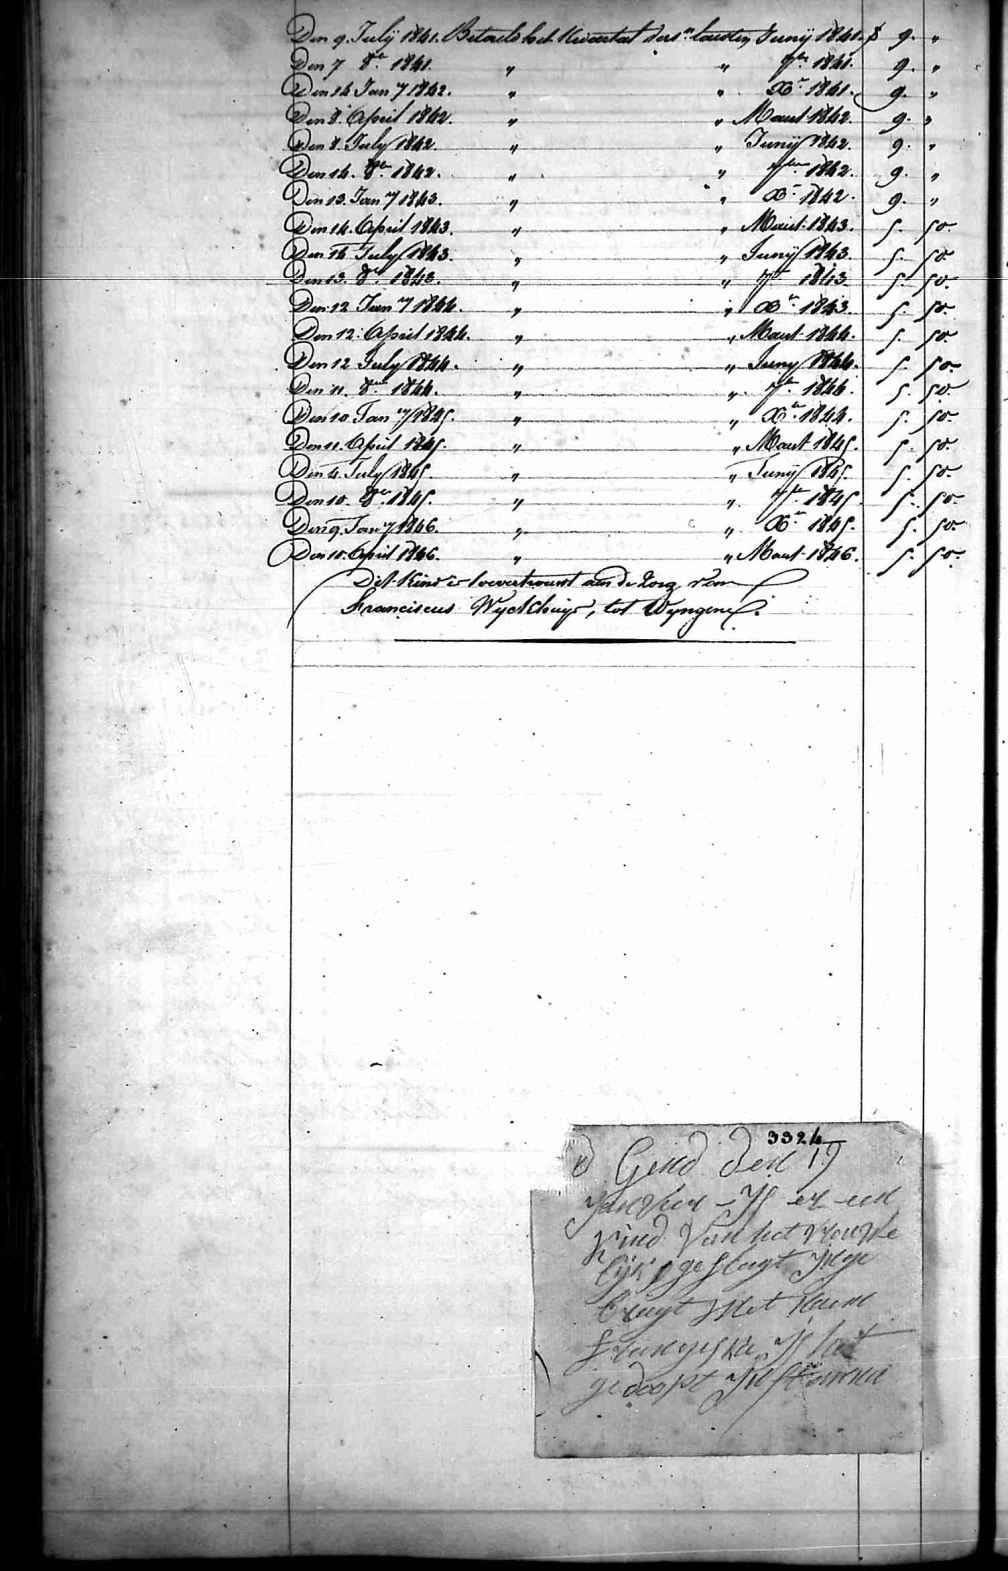 Den 9. Julij 1841. Betaeld het Kwartael laesten Junij 1841. f 9. "
Den 7 8er 1841. " " 7er 1841. 9. "
Den 14 Jany 1842. " " Xr 1841. 9. "
Den 8. April 1842. " " Maart 1842. 9. "
Den 8. July 1842. " " Junij 1842. 9. "
Den 14. 8er 1842. " " 7er 1842. 9. "
Den 13. Jany 1843. " " Xr 1842. 9. "
Den 14. April 1843. " " Maart 1843. 5. 50
Den 14 July 1843. " " Junij 1843. 5. 50.
Den 13. 8er 1843. " " 7er 1843 5. 50.
Den 12 Jany 1844. " " Xer 1843. 5. 50.
Den 12. April 1844. " " Maart 1844. 5. 50.
Den 12 July 1844. " " Juny 1844. 5. 50
Den 11. 8er 1844. " " 7er 1844. 5. 50.
Den 10 Jany 1845. " " Xer 1844. 5. 50
Den 11. April 1845. " " Maart 1845. 5. 50.
Den 4. July 1845. " " Junij 1845. 5. 50.
Den 10. 8er 1845. " " 7er 1845. 5. 50.
Den 9. Jany 1846. " " Xer 1845. 5. 50.
Den 10. April 1846. " " Maart 1846. 5. 50.
Dit Kind is toevertrouwt aan de Zorg van
Franciscus Wyckhuys, tot Wyngene.
3324
Gend den 19
Is er een
kind Van het vrouwe
lyk geslagt Inge
bragt Met Naem
Frangiska Is het
gedoopt